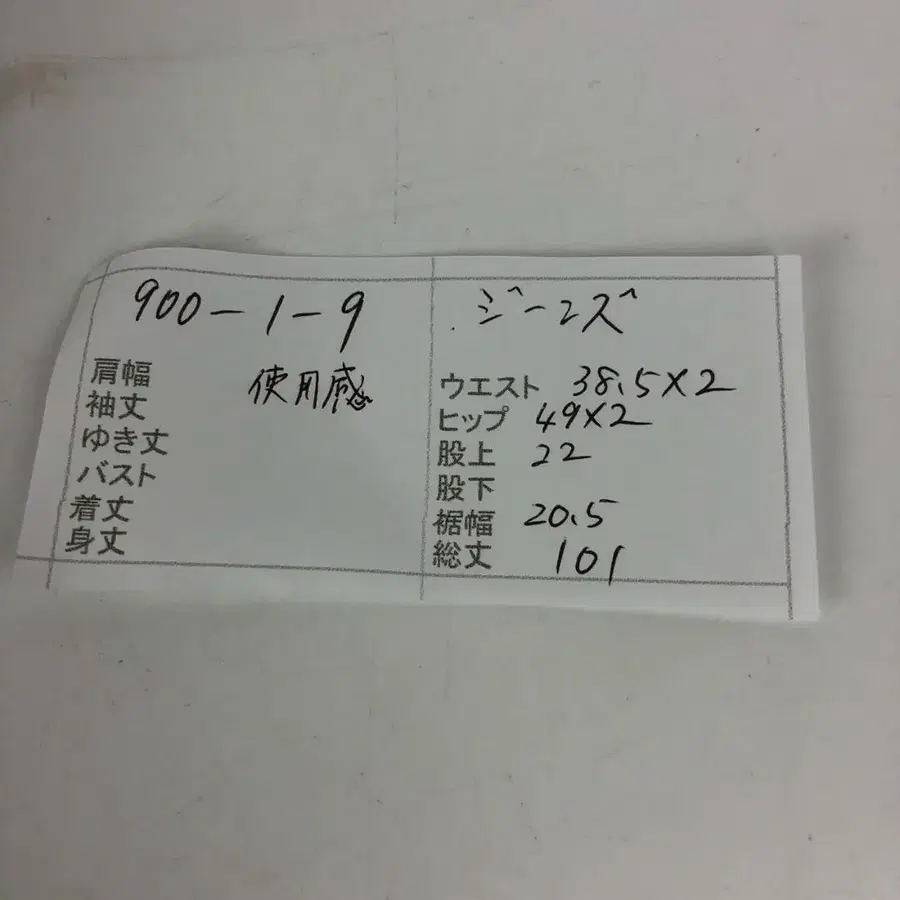 900-1-9
肩幅
使用感
袖丈
ゆき丈
バスト
着丈
身丈
ジーンズ
ウエスト 38.5×2
ヒップ 49×2
股上 22
股下
裾幅 20.5
総丈 101